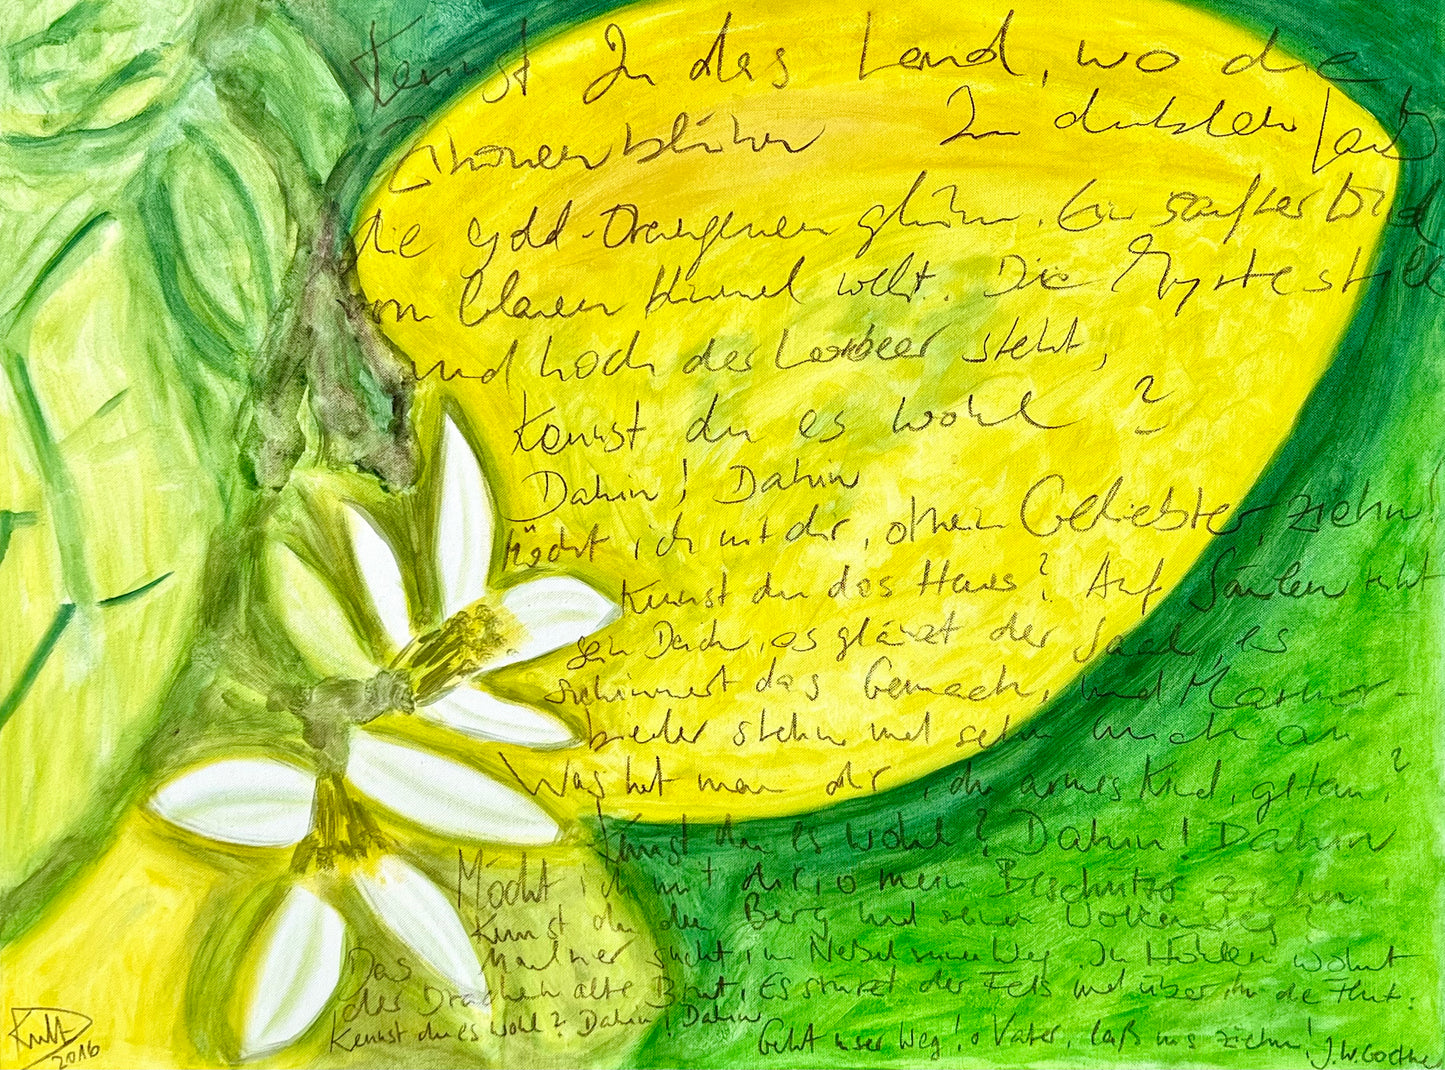 Kennst Du das Land, wo die
Zitronen blühn Im dunklen Laub
die Gold-Orangenen glühn. Ein sanfter Wind
vom blauen Himmel weht. Die Myrte still
und hoch der Lorbeer steht,
Kennst du es wohl?
Dahin! Dahin
Möcht ich mit dir, o mein Geliebter, ziehn!
Kennst du das Haus? Auf Säulen ruht
sein Dach, es glänzt der Saal, es
schimmert das Gemach, und Marmor-
bilder stehn und sehn mich an
Was hat man dir, du armes Kind, getan?
Kennst du es wohl? Dahin! Dahin
Möcht ich mit dir, o mein Beschützer, ziehn!
Kennst du den Berg und seinen Wolkensteg?
Das Maultier sucht im Nebel seinen Weg. In Höhlen wohnt
der Drachen alte Brut, Es stürzt der Fels und über ihn die Flut.
Kennst du es wohl? Dahin! Dahin
Geht unser Weg! o Vater, laß uns ziehn! J.W. Goethe
2016